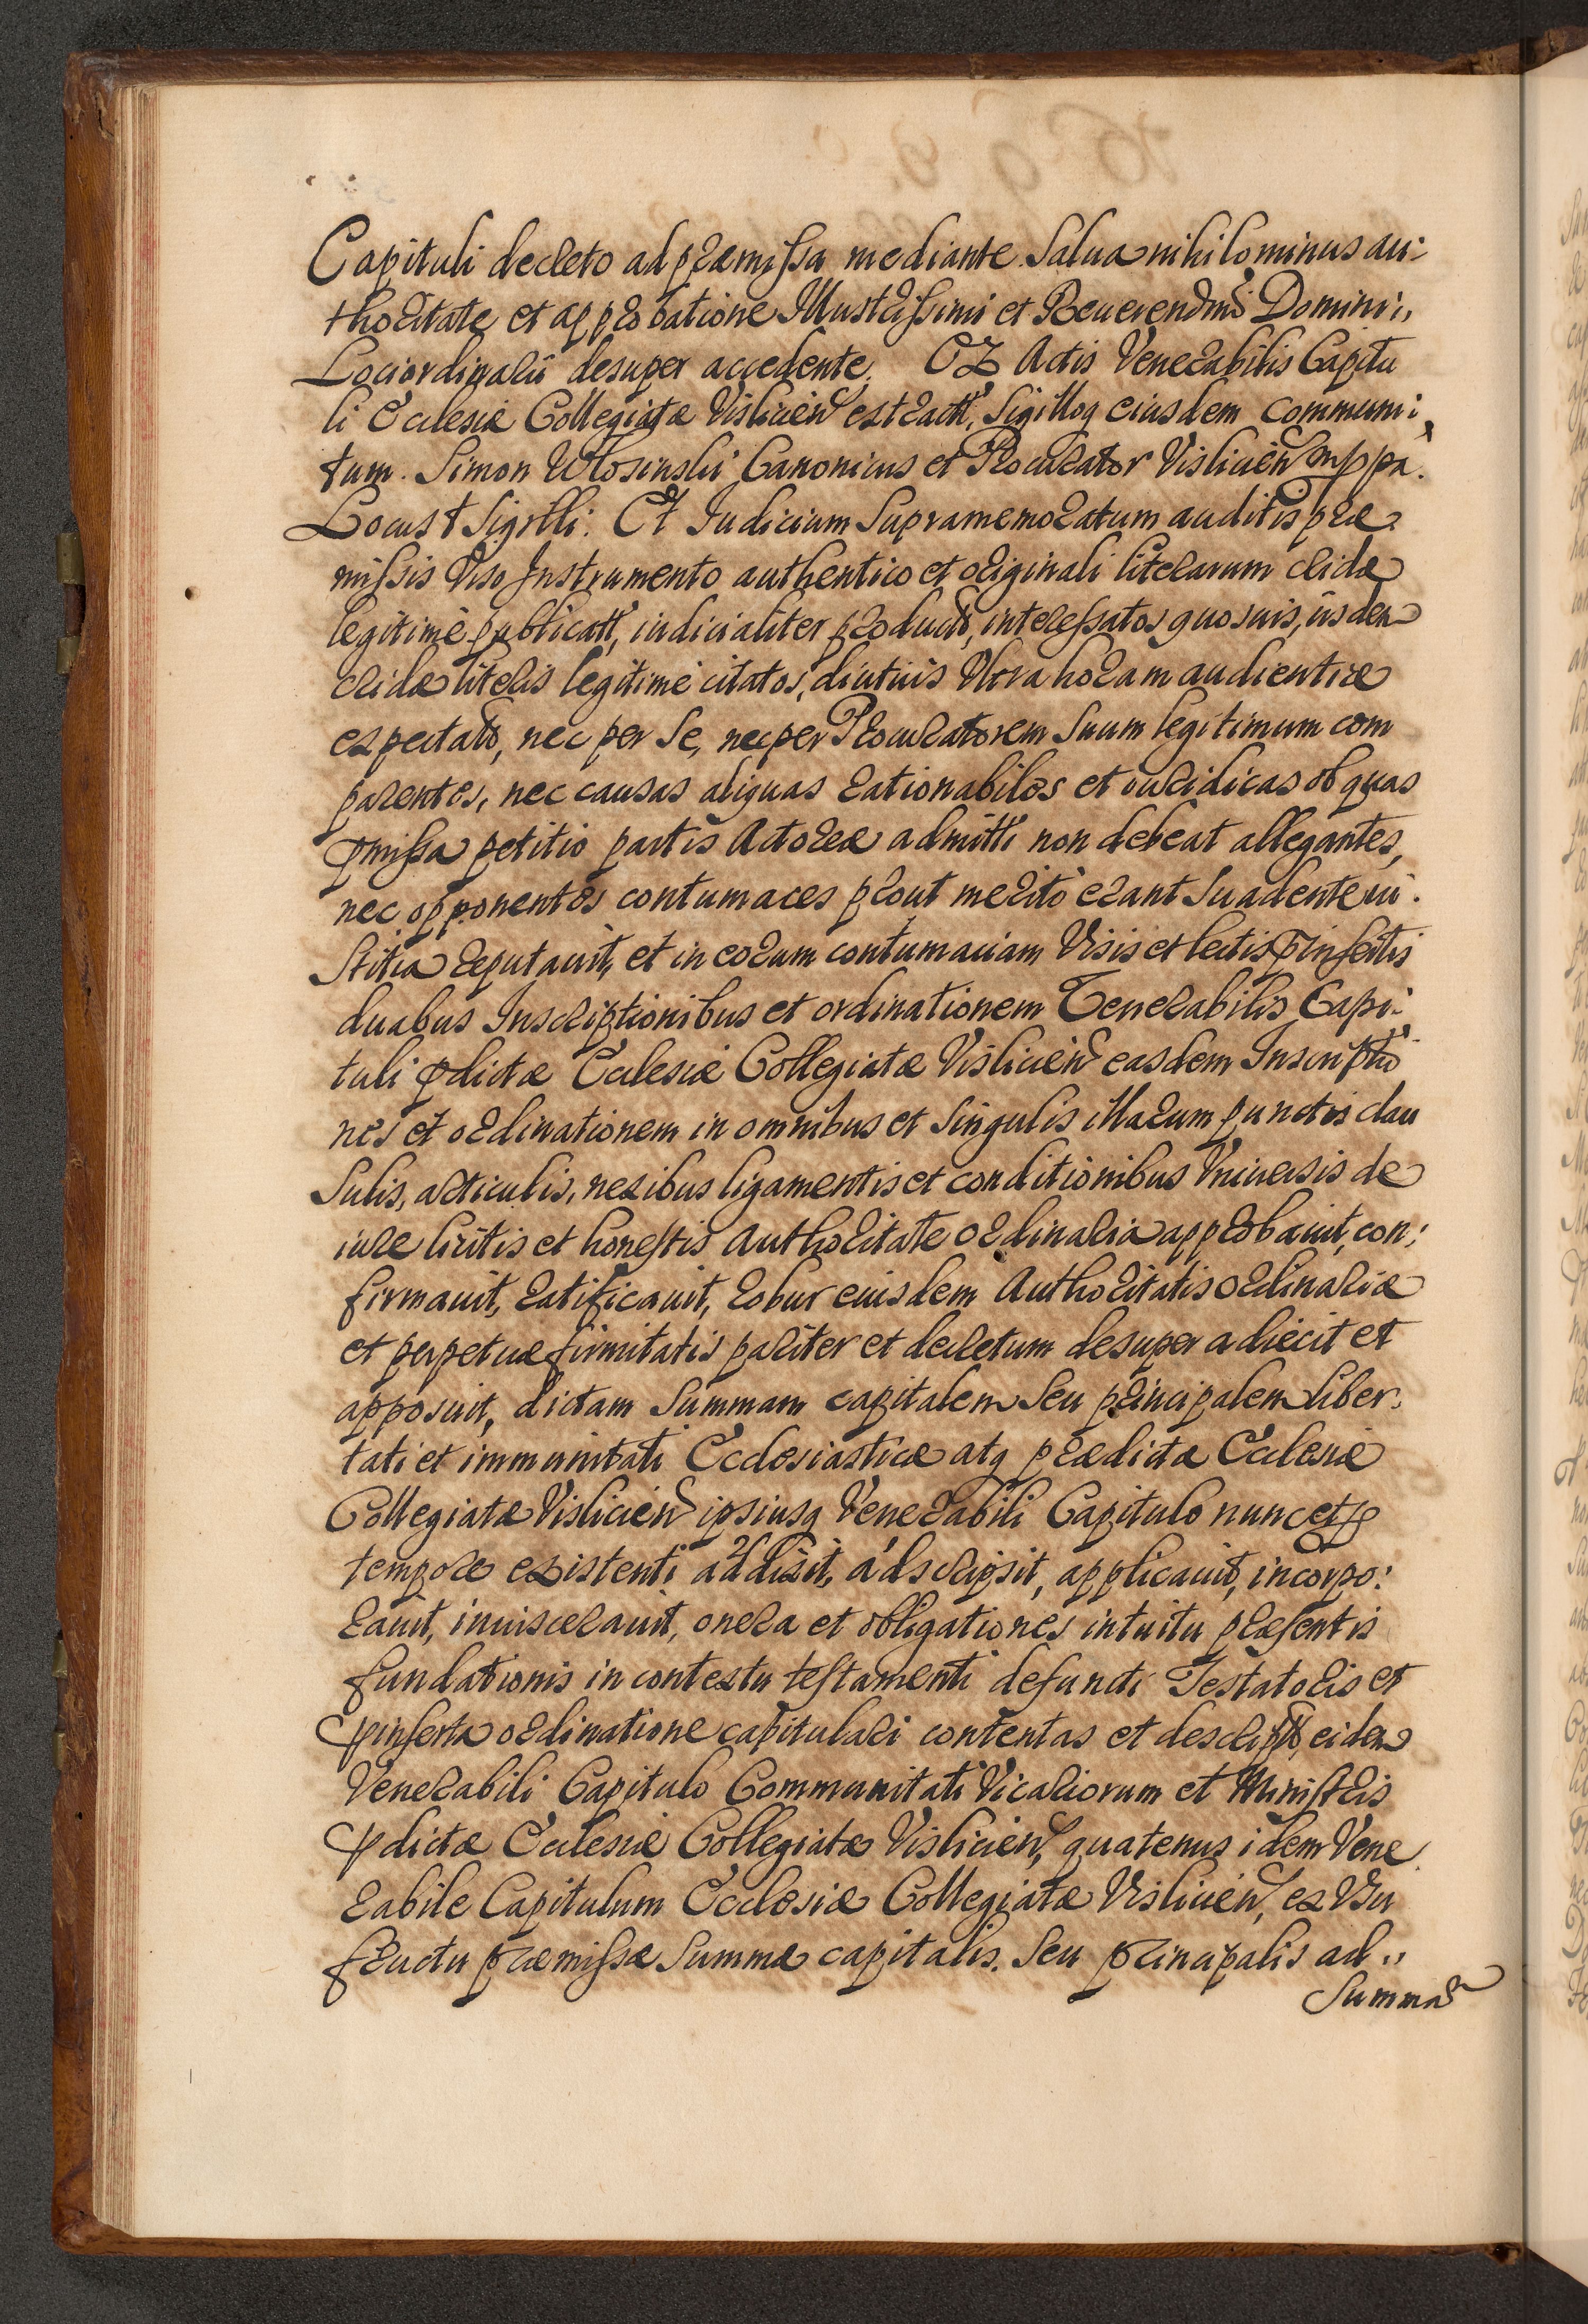 Capituli decreto ad præmissa mediante. Salua nihilominus au:
thoritate et approbatione Illustrissimi et Reuerendmi Domini,,
Lociordinarii desuper accedente. Ex Actis Venerabilis Capitu
li Ecclesiæ Collegiatæ Vislicien extractt, Sigilloq eiusdem communi:
tum. Simon Wlosinski Canonicus et Procurator Vislicien mppa.
Locus † Sigilli. Et Iudicium Supramemoratum auditis præ
missis Viso Instrumento authentico et originali literarum cridæ
legitimè publicatt, iudicialiter producto, interessatos quosuis, iisdem
cridæ literis legitimè citatos, diutius Vltra horam audientiæ
expectato, nec per Se, nec per Procuratorem Suum legitimum com
parentes, nec causas aliquas rationabiles et iuridicas ob quas
pmissa petitio partis Actoreæ admitti non debeat allegantes,
nec opponentes contumaces prout meritò erant Suadente iu:
Stitia reputauit, et in eorum contumaciam Visis et lectis pinsertis
duabus Inscriptionibus et ordinationem Venerabilis Capi:
tuli pdictæ Ecclesiæ Collegiatæ Vislicien easdem Inscriptio
nes et ordinationem in omnibus et Singulis illarum punctis clau
Sulis, articulis, nexibus ligamentis et conditionibus Vniuersis de
iure licitis et honestis Authoritate ordinaria approbauit, con:
firmauit, ratificauit, robur eiusdem Authoritatis ordinariæ
et perpetuæ firmitatis pariter et decretum desuper adiecit et
apposuit, dictam Summam capitalem Seu principalem liber:
tati et immunitati Ecclesiasticæ atq prædictæ Ecclesiæ
Collegiatæ Vislicien ipsiusq Venerabili Capitulo nunc et p
tempore existenti addixit, adscripsit, applicauit, incorpo:
rauit, inuiscerauit, onera et obligationes intuitu præsentis
fundationis in contextu testamenti defuncti Testatoris et
pinserta ordinatione capitulari contentas et descriptt, eidem
Venerabili Capitulo Communitati Vicariorum et Ministris
pdictæ Ecclesiæ Collegiatæ Vislicien, quatenus idem Vene
rabile Capitulum Ecclesiæ Collegiatæ Vislicien, ex Vsu
fructu præmissæ Summæ capitalis. Seu principalis ad,,
Summam